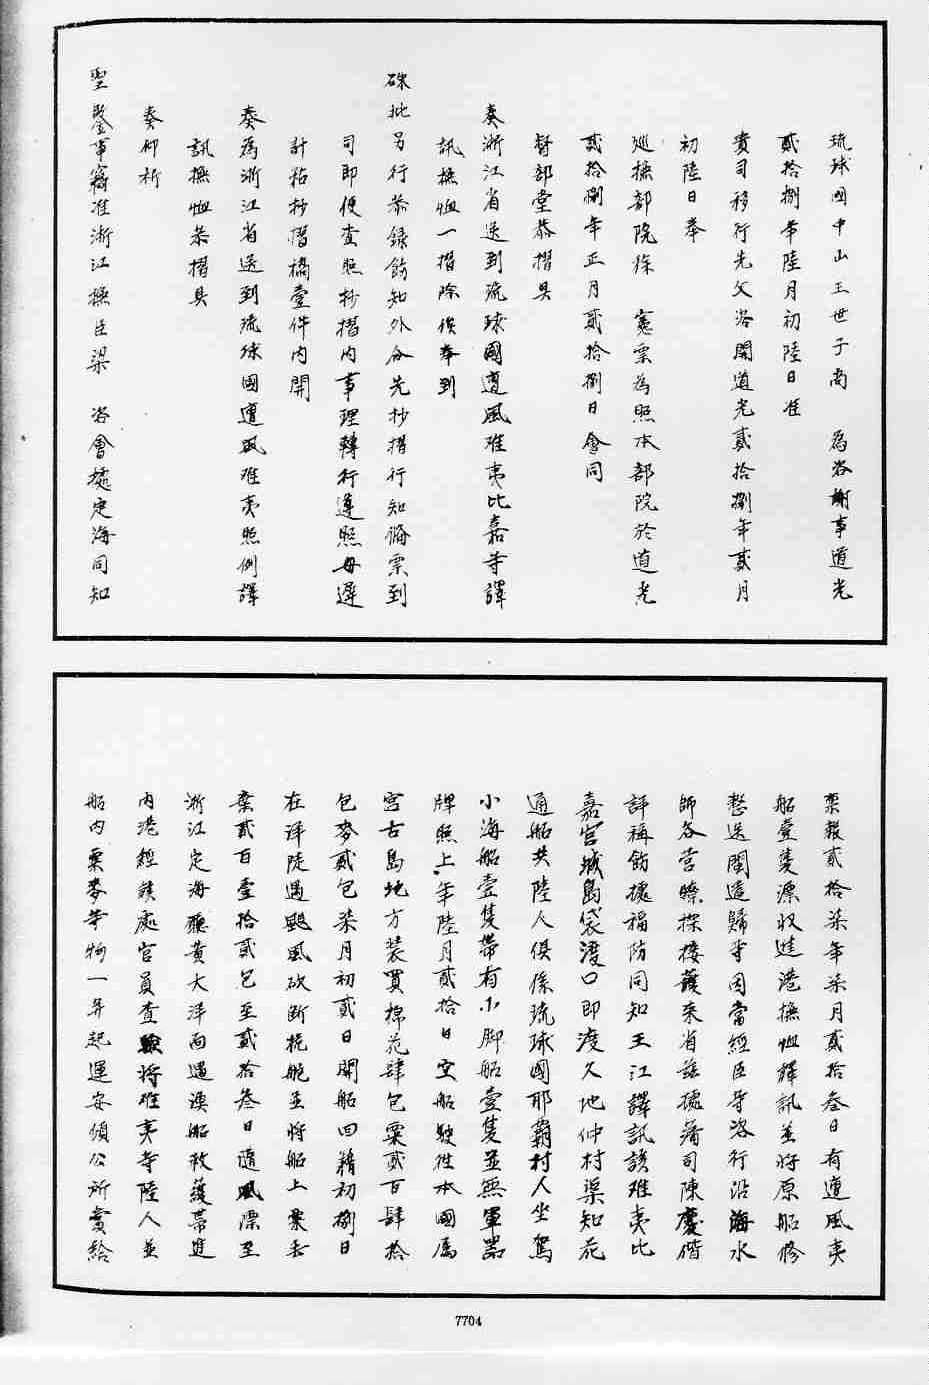 琉球國中山王世子尚　為咨謝事道光
貳拾捌年陸月初陸日准
貴司移行先父咨開道光貳拾捌年貳月
初陸日奉
巡撫部院徐　憲票為照本部院於道光
貳拾捌年正月貳拾捌日會同
督部堂恭摺具
奏浙江省送到琉球國遭風难夷比嘉等譯
訊撫恤一摺除俟奉到
硃批另行恭錄飭知外合先抄摺行知俻票到
司即便查照抄摺內事理轉行遵照毋遲
計粘抄摺稿壹件內開
奏為浙江省送到琉球國遭風难夷照例譯
訊撫恤恭摺具
奏仰祈
聖鑒事竊准浙江撫臣梁　咨會據定海同知
稟報貳拾柒年柒月貳拾叁日有遭風夷
船壹隻漂收進港撫恤譯訊並將原船修
整送閩遣歸等因當經臣等咨行沿海水
師各营瞭探接護來省兹據藩司陳慶偕
詳稱飭據福防同知王江譯訊該难夷比
嘉宮城島袋渡口即渡久地仲村渠知花
通船共陸人俱係琉球國耶霸村人坐駕
小海船壹隻帶有小脚船壹隻並無軍器
牌照上年陸月貳拾日空船駛往本國属
宮古島地方裝買棉花肆包粟貳百肆拾
包麥貳包柒月初貳日開船回籍初捌日
在洋陡遇颶風砍断桅舵並將船上粟丢
棄貳百壹拾貳包至貳拾叁日随風漂至
浙江定海廳黄大洋面遇漁船救護帶進
內港經該處官員查驗將难夷等陸人並
船內粟麥等物一并起運安頓公所賞給
7704